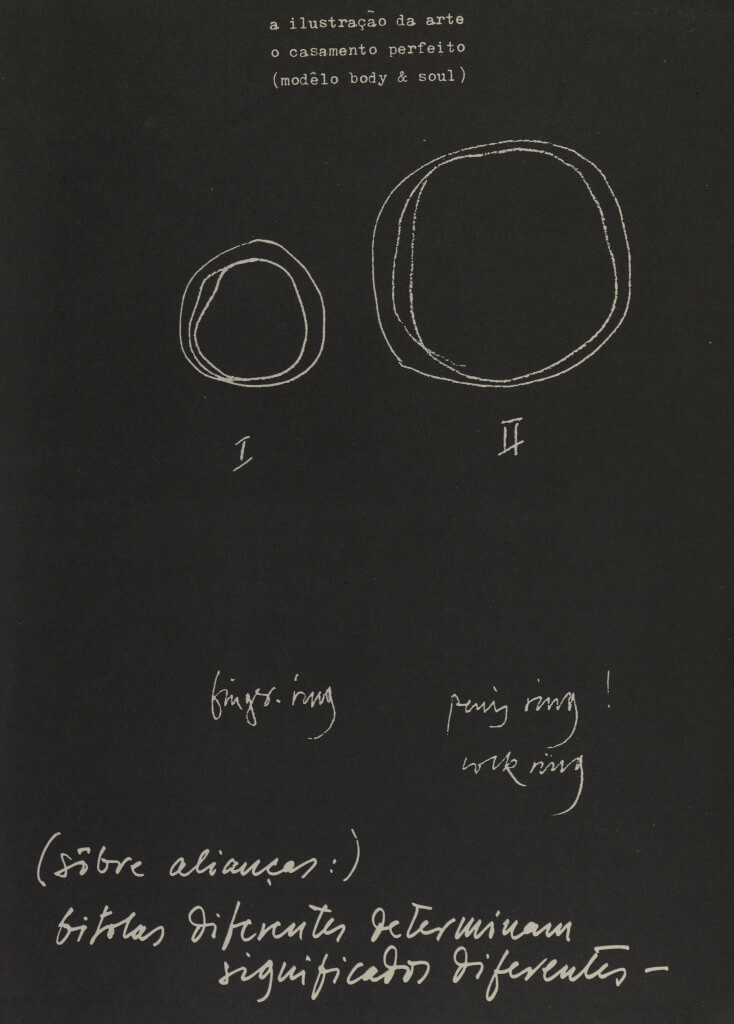 a ilustração da arte
o casamento perfeito
(modêlo body & soul)
I
II
finger-ring
penis ring !
cock ring
(sôbre alianças:)
bitolas diferentes determinam
significados diferentes –